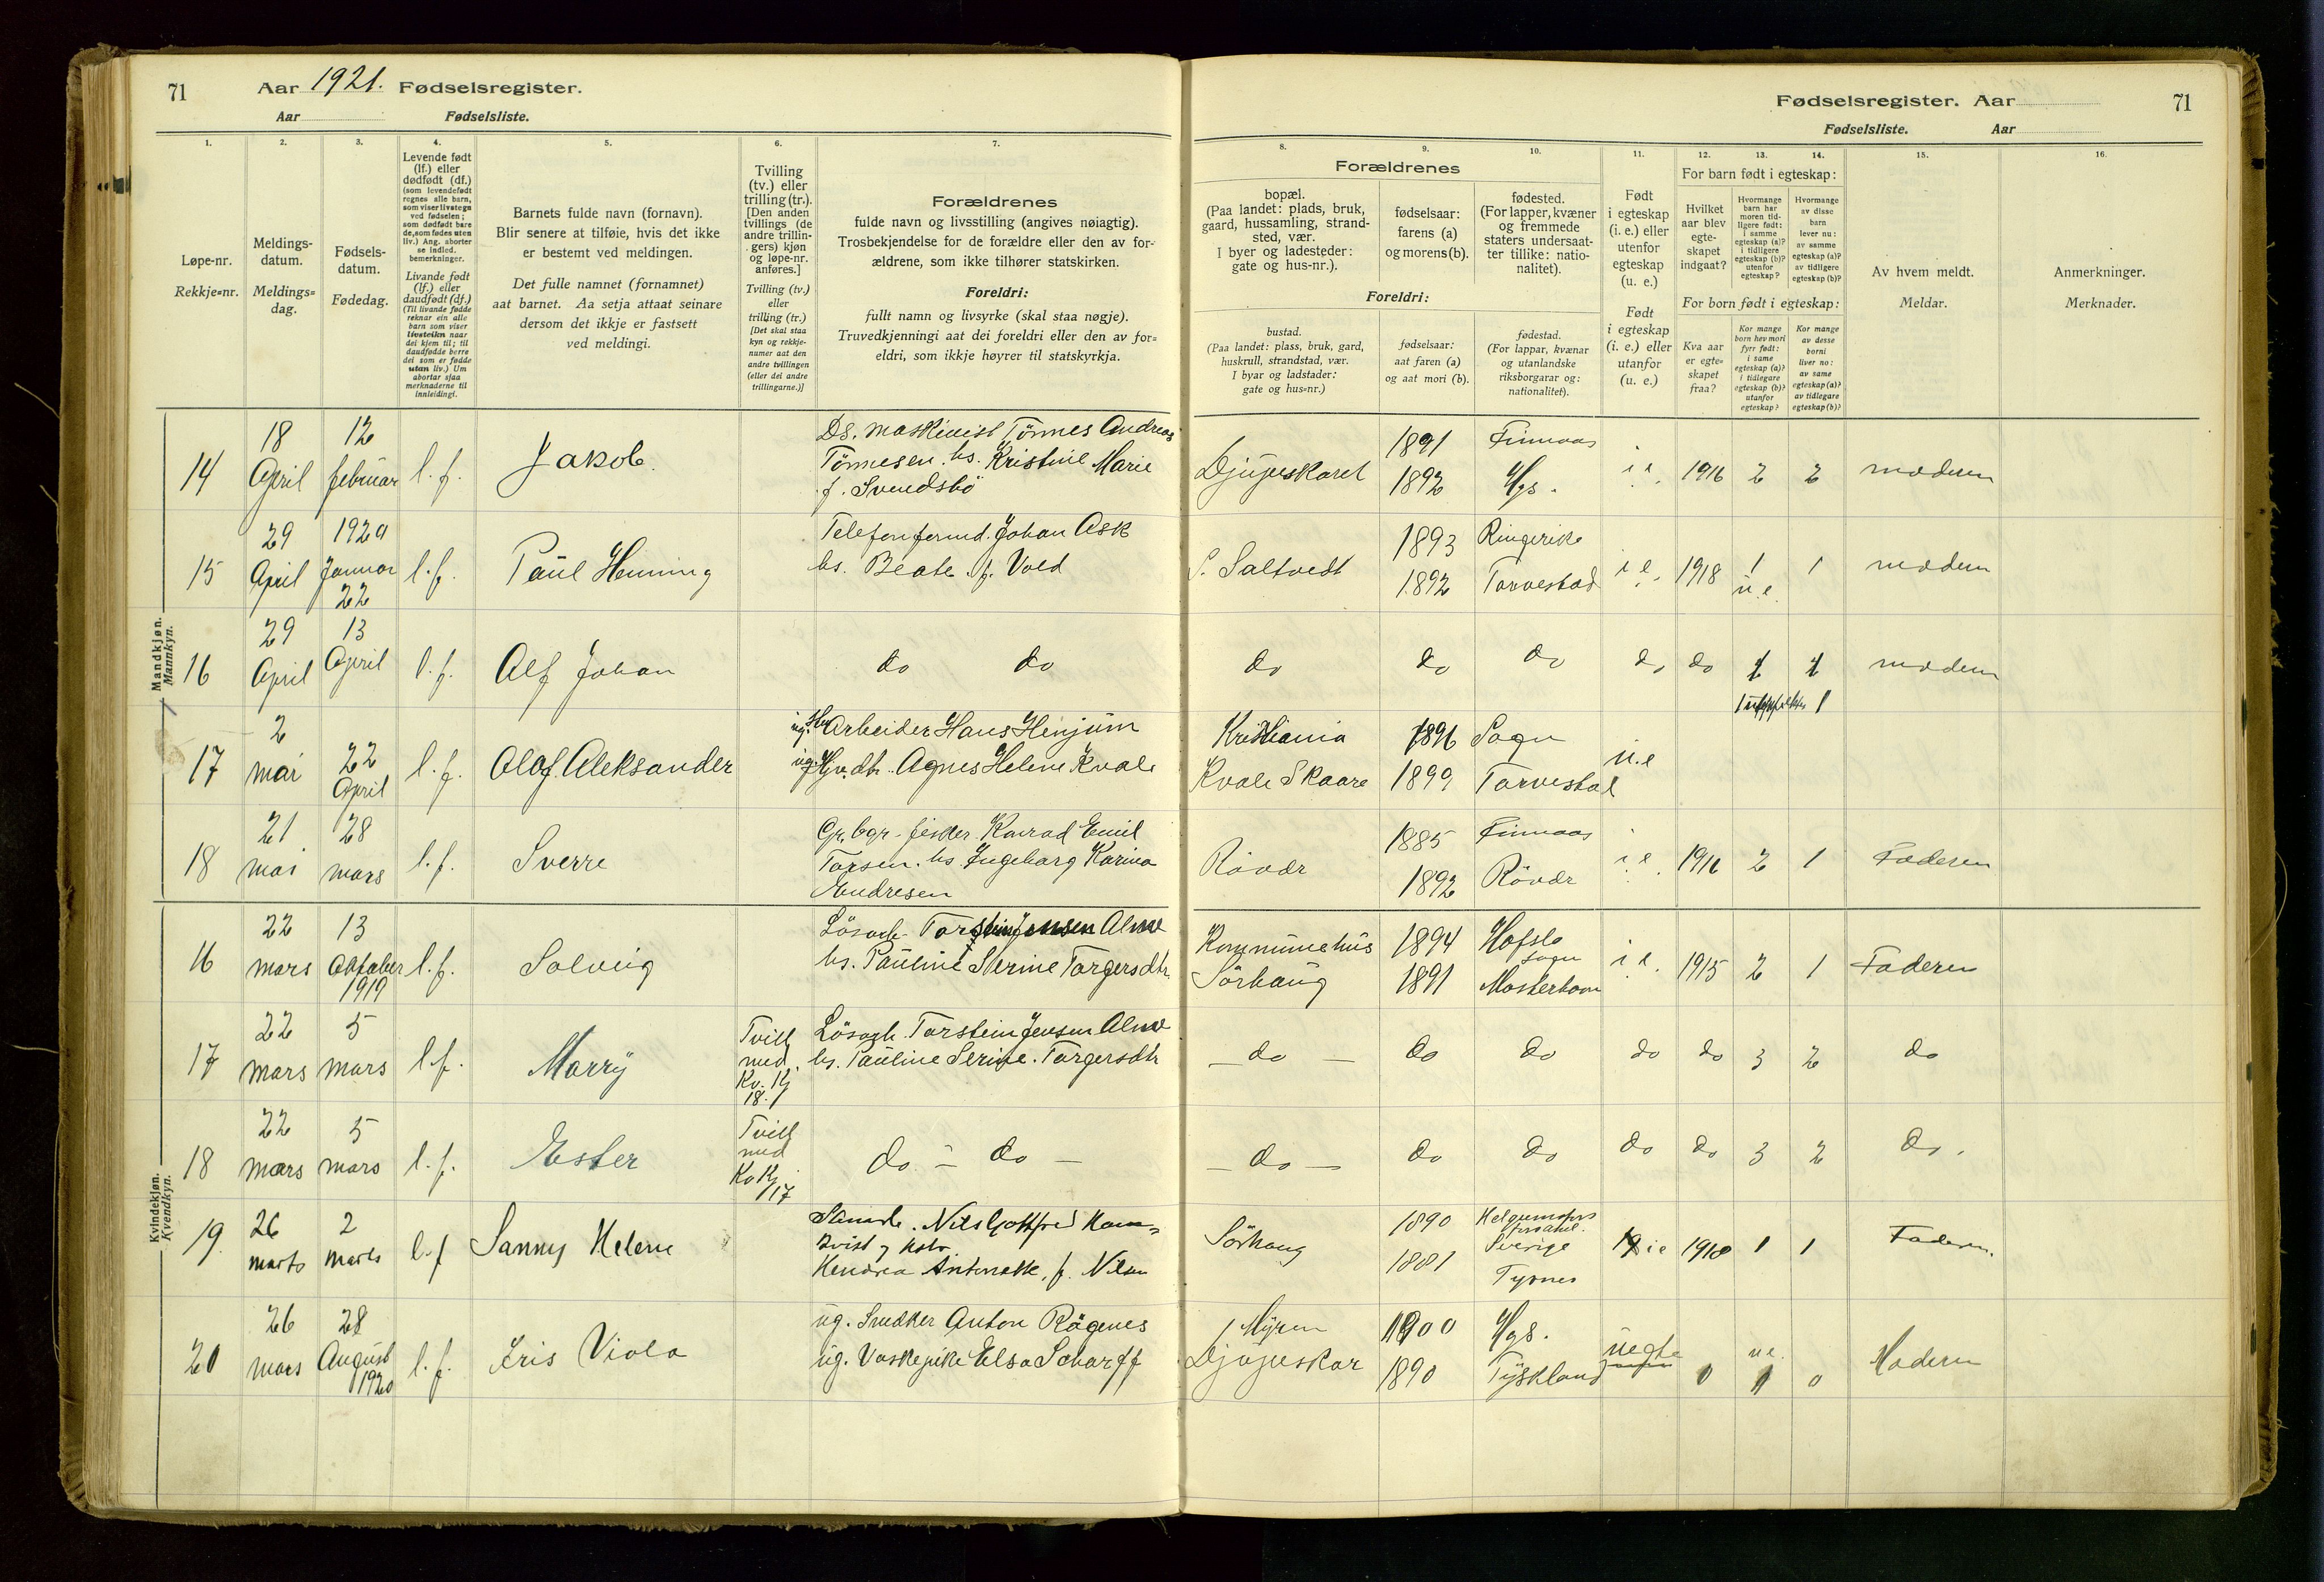 71
Aar 1921. Fødselsregister.
Aar Fødselsliste.
Fødselsregister. Aar
71
Fødselsliste. Aar
1. 2. 3. 4. 5. 6. 7. 8. 9. 10. 11. 12. 13. 14. 15. 16.
Løpe-nr.
Rekkje=nr.
Meldings-
datum.
Meldings=
dag.
Fødsels-
datum.
Fødedag.
Levende født
(lf.) eller
dødfødt (df.)
(som levendefødt
regnes alle barn,
som viser livstegn
ved fødselen;
som dødfødt bare
de, som fødes uten
liv.) Ang. aborter
se indled.
bemerkninger.
Livande født
(lf.) eller
daudfødt (df.)
(Til livande fødde
reknar ein alle
barn som viser
livsteikn naar
dei kjem til; til
daudfødde berre
dei som er fødde
utan liv.) Um
abortar sjaa
merknaderne til
innleidingi.
Barnets fulde navn (fornavn).
Blir senere at tilføie, hvis det ikke
er bestemt ved meldingen.
Det fulle namnet (fornamnet)
aat barnet. Aa setja attaat seinare
dersom det ikkje er fastsett
ved meldingi.
Tvilling
(tv.) eller
trilling (tr.).
[Den anden
tvillings (de
andre trillin-
gers) kjøn
og løpe-nr.
anføres.]
Tvilling (tv.)
eller
trilling (tr.)
[Det skal staa
kyn og rekkje-
numer aat den
andre tvillingen
(eller dei andre
trillingarne.)]
Forældrenes
fulde navn og livsstilling (angives nøiagtig).
Trosbekjendelse for de forældre eller den av for-
ældrene, som ikke tilhører statskirken.
Foreldri:
fullt namn og livsyrke (skal staa nøgje).
Truvedkjenningi aat dei foreldri eller den av for=
eldri, som ikkje høyrer til statskyrkja.
Forældrenes
bopæl.
(Paa landet: plads, bruk,
gaard, hussamling, strand-
sted, vær.
I byer og ladesteder:
gate og hus-nr.).
fødselsaar:
farens (a)
og morens (b).
fødested.
(For lapper, kvæner
og fremmede
staters undersaat-
ter tillike: natio-
nalitet).
Foreldri:
bustad.
(Paa landet: plass, bruk, gard,
huskrull, strandstad, vær.
I byar og ladstader:
gate og hus=nr.)
fødselsaar:
aat faren (a)
og aat mori (b).
fødestad.
(For lappar, kvænar
og utanlandske
riksborgarar og:
nationalitet).
Født
i egteskap
(i. e.) eller
utenfor
egteskap
(u. e.)
Født
i egteskap
(i. e.) eller
utanfor
(u. e.)
For barn født i egteskap:
Hvilket
aar blev
egte-
skapet
indgaat?
Hvormange
barn har
moren tid-
ligere født:
i samme
egteskap (a)?
i tidligere
egteskap (b)?
utenfor
egteskap?
Hvormange
av disse
barn
lever nu:
av samme
egteskap (a)?
av tidligere
egteskap (b)?
For born født i egteskap:
Kva aar
er egte=
skapet
fraa?
Kor mange
born hev mori
fyrr født:
i same
egteskap (a)?
i tidlegare
egteskap (b)?
utanfor
egteskap?
Kor mange
av desse
borni
liver no:
av same
egteskap (a)?
av tidlegare
egteskap (b)?
Av hvem meldt.
Meldar.
Anmerkninger.
Merknader.
Mandkjøn.
Mannkyn.
14 18 April 12 februar l. f. Jakob.
Ds. maskinist Tönnes Andreas
Tönnesen. hs. Kristine Marie
f. Svendsbö
Djupeskaret 1891 1892 Finnaas Hgs. i e. 1916 2 2 moderen
15 29 April 1920 Januar 22 l. f. Paul Henning
Telefonformd. Johan Ask
hs. Beate f. Vold
S. Saltvedt 1893 1892 Ringerike Torvestad i e. 1918 1 u.e. 1 moderen
16 29 April 13 April l. f. Alf Johan
do do do do do do do 1 moderen
17 2 mai 22 April l. f. Olaf Aleksander
ug. Arbeider Hans Henjum
ug. Hjv. dtr. Agnes Helene Kvale
Kristiania 1896 Sogn u.e
Kvale Skaare 1899 Torvestad
18 21 mai 28 mars l. f. Sverre
Gr. bgr. fisker Konrad Emil
Torsen. hs Ingeborg Karina
Endresen
Rövær 1885 1892 Finnaas Rövær i e. 1916 2 1 Faderen
Kvindekjøn.
Kvendkyn.
16 22 mars 13 Oktober 1919 l. f. Solveig
Lösarb. Torstein Jensen Alme
hs. Pauline Serine Torgersdtr.
Kommunehus Sörhaug 1894 1891 Hafslo Sogn Mosterhavn i e. 1915 2 1 Faderen
17 22 mars 5 mars l. f. Marry
Tvill med Kv. Kj 18.
Lösarb. Torstein Jensen Alme
hs. Pauline Serine. Torgersdtr
do do do do do 3 2 do
18 22 mars 5 mars l. f. Ester
Tvill med Kv Kj 17
do - do -
do do do do do 3 2 do.
19. 26 marts 2 marts l. f Sanny Helene
Nils Gottfred
Hendrea Antonette, f. Nilsen
Sörhaug 1890 1881 Sverige Tysnes ie 1918 1 1 Faderen.
20 26 mars 28 August 1920 l. f. Iris Viola
ug. Snedker Anton Rögenes
ug. Vaskepike Elsa Scharff
Myren 1900 Hgs. uegte
Djupeskar 1890 Tyskland 0 u e. 0 Moderen